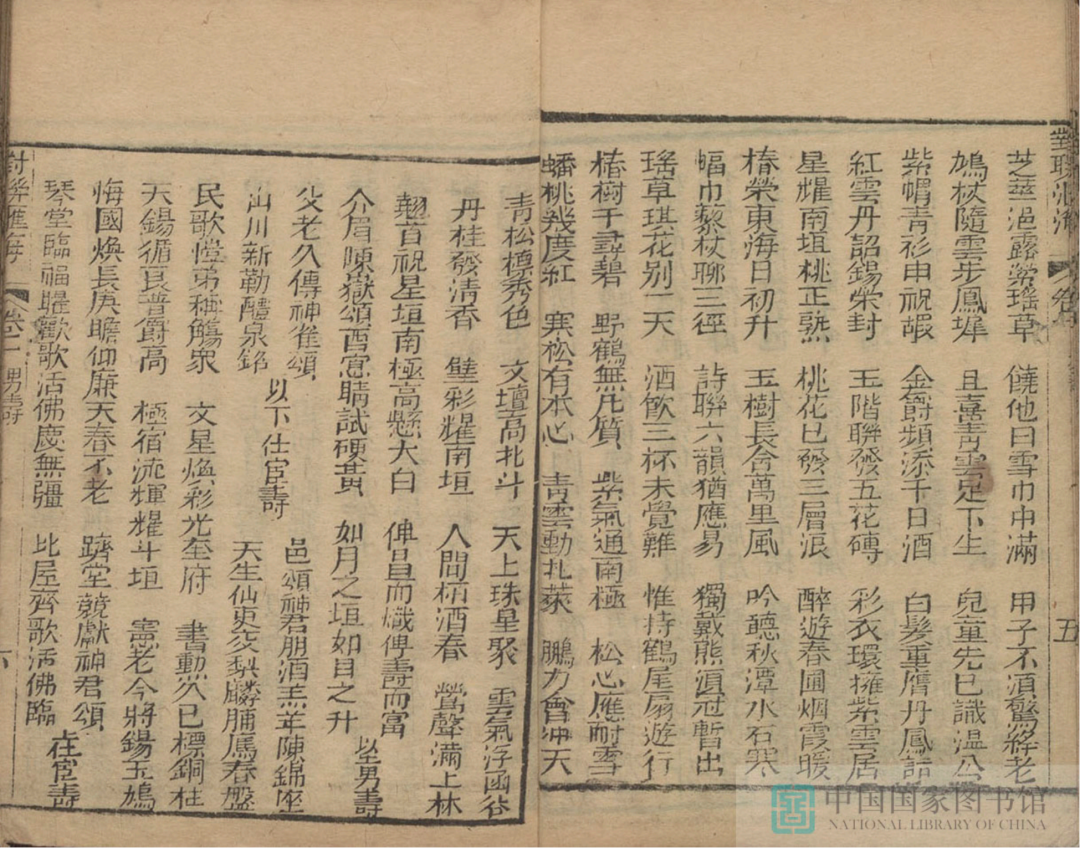 對聯滙海 卷 五
芝華浥露榮瑤草 饒他日雪巾巾滿 甲子不須驚絳老
鳩杖隨雲步鳳墀 且喜青雲足下生 兒童先已識溫公
紫帽青衫申祝嘏 金爵頻添千日酒 白髮重膺丹鳳詔
紅雲丹詔錫榮封 玉階聯發五花磚 彩衣環擁紫雲居
星耀南垣桃正熟 桃花已發三層浪 醉遊春圃烟霞暖
椿榮東海日初升 玉樹長含萬里風 吟聽秋潭水石寒
幅巾藜杖聊三徑 詩聯六韻猶應易 獨戴熊冠暫出
瑤草琪花別一天 酒飲三杯未覺難 惟持鶴尾扇遊行
椿樹千尋碧 野鶴無凡質 紫氣通南極 松心應耐雪
蟠桃幾度紅 寒松有本心 青雲動北萊 鵬力會冲天
青松標秀色 文壇高北斗 天上珠星聚 雲氣浮函谷
丹桂發清香 壁彩耀南垣 人間栢酒春 鶯聲滿上林
翹首祝星垣南極高懸大白 俾昌而熾俾壽而富
介眉陳嶽頌酉窓晴試硬黃 如月之垣如日之升 以上男壽
父老久傳神雀頌 以下仕宦壽 邑頌神君朋酒羔羊陳錦座
山川新勒醴泉銘 天生仙吏交梨麟脯爲春盤
民歌愷弟稱觴衆 文星煥彩光奎府 書勳久已標銅柱
天錫循良晉爵高 極宿流輝耀斗垣 憲老今將錫玉鳩
海國煥長庚瞻仰廉天春不老 躋堂競獻神君頌
琴堂臨福曜歡歌活佛慶無疆 比屋齊歌活佛臨 在宦壽
對聯滙海 卷二 男壽 六
中国国家图书馆
NATIONAL LIBRARY OF CHINA